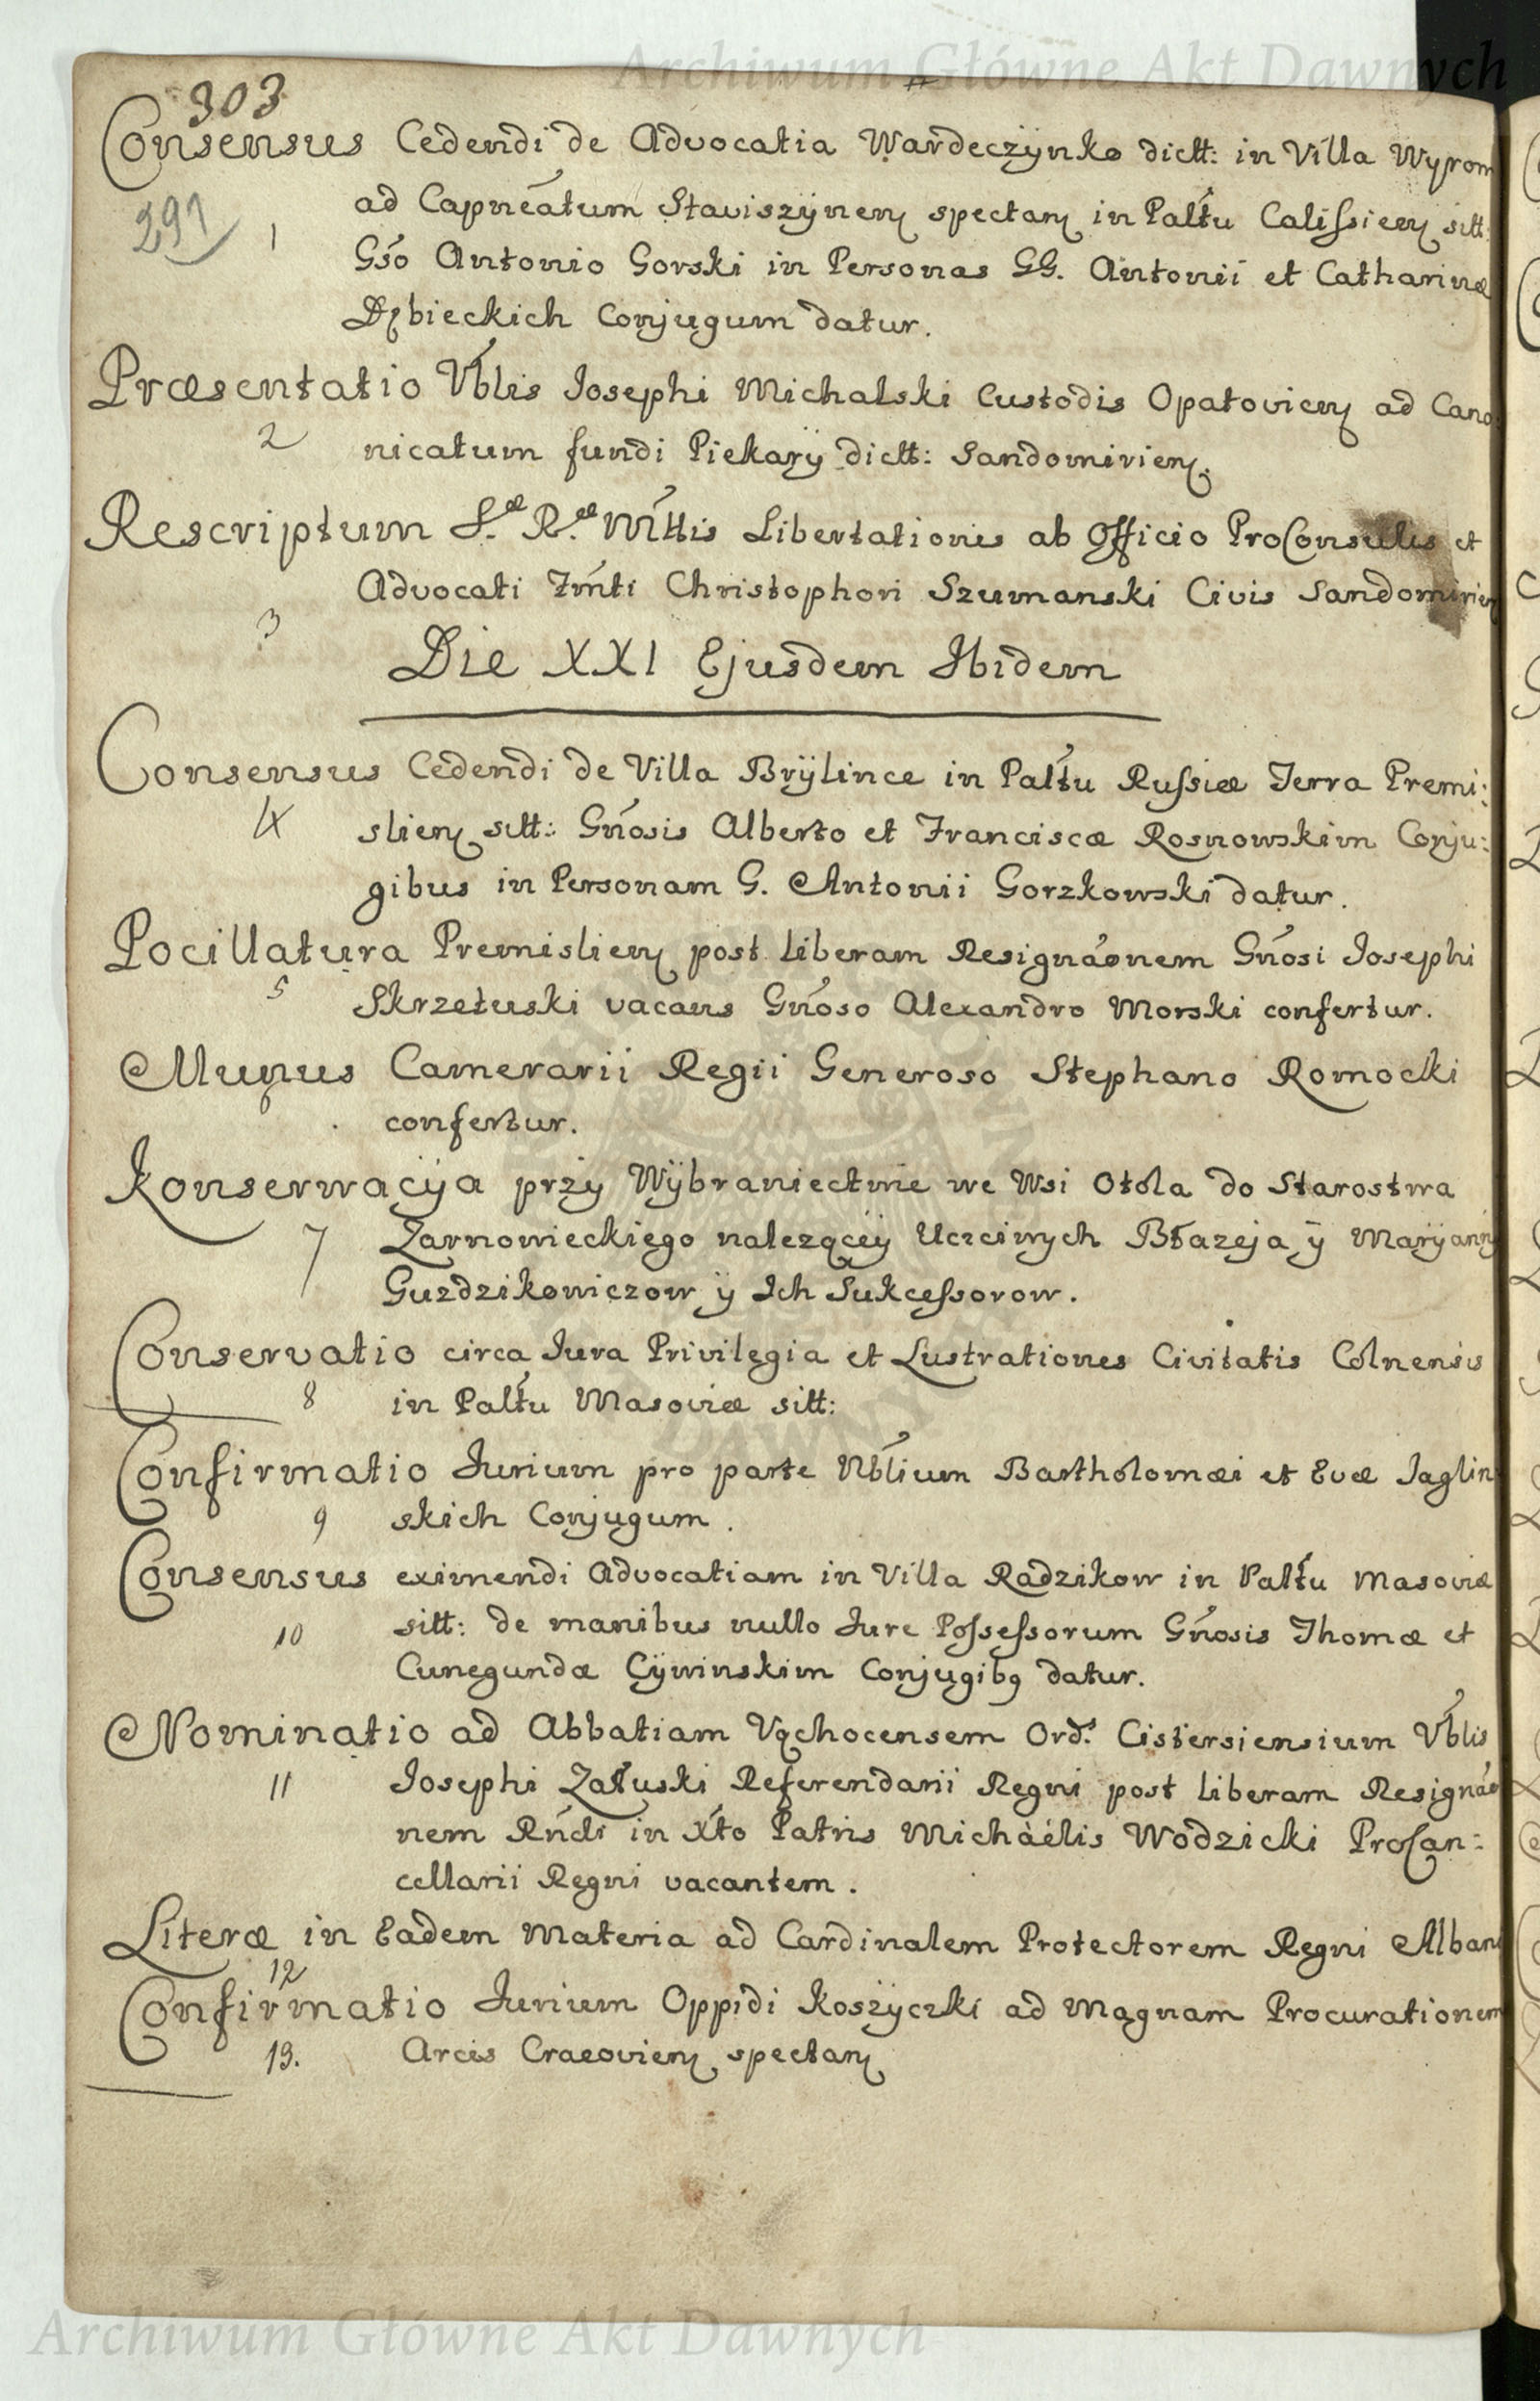 Archiwum Główne Akt Dawnych
303
Consensus Cedendi de Advocatia Wardeczÿnko dictt: in Villa Wyrom
291
1
ad Capneátum Staviszÿnen spectan in Paltu Calissien sitt:
Gśo Antonio Gorski in Personas GG. Antonii et Catharinæ
Dębieckich Conjugum datur.
Præsentatio Vblis Josephi Michalski Custodis Opatovien ad Cano
2 nicatum fundi Piekarÿ dictt: Sandomirien.
Rescriptum S.æ R.æ Mttis Libertationis ab Officio ProConsulis et
3 Advocati Fmti Christophori Szumanski Civis Sandomirien
Die XXI Ejusdem Ibidem
Consensus Cedendi de Villa Brÿlince in Paltu Russiæ Terra Premi:
4 slien sitt: Gnosis Alberto et Franciscæ Rosnowskim Conju:
gibus in Personam G. Antonii Gorzkowski datur.
Pocillatura Premislien post liberam Resignáonem Gnosi Josephi
5 Skrzetuski vacans Gnoso Alexandro Morski confertur.
Munus Camerarii Regii Generoso Stephano Romocki
confertur.
Konserwacÿa przÿ Wÿbraniectwie we Wsi Otola do Starostwa
7 Zarnowieckiego nalezącÿ Ucciwych Błazeja ÿ Marÿannÿ
Guzdzikowiczow ÿ Ich Sukcessorow.
Conservatio circa Jura Privilegia et Lustrationes Civitatis Colnensis
8 in Paltu Masoviæ sitt:
Confirmatio Jurium pro parte Nblium Bartholomæi et Evæ Jaglin
9 skich Conjugum.
Consensus eximendi Advocatiam in Villa Radzikow in Paltu Masoviæ
10 sitt: de manibus nullo Jure Possessorum Gnosis Thomæ et
Cunegundæ Cÿwinskim Conjugibꝫ datur.
Nominatio ad Abbatiam Vąchocensem Ord.s Cistersiensium Vblis
11 Josephi Załuski Referendarii Regni post liberam Resignáo
nem Rndi in Xto Patris Michàélis Wodzicki ProCan:
cellarii Regni vacantem.
Literæ in Eadem Materia ad Cardinalem Protectorem Regni Albani
12
Confirmatio Jurium Oppidi Koszÿczki ad Magnam Procurationem
13. Arcis Cracovien spectan
Archiwum Główne Akt Dawnych